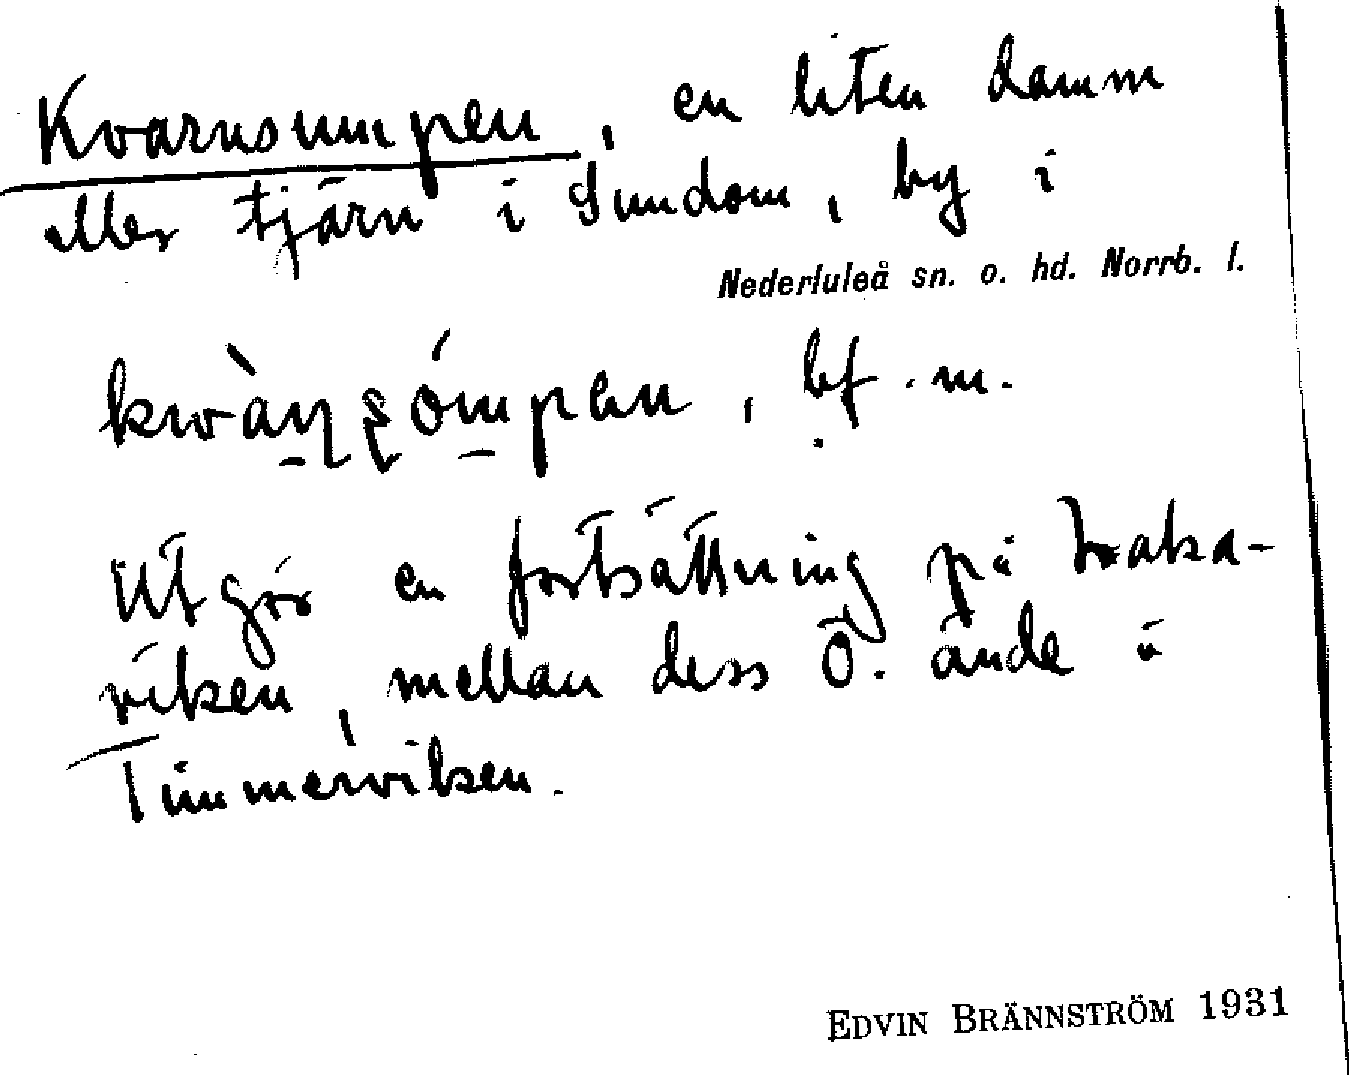 Kvarnsumpen, en liten damm
eller tjärn i Sundom, by i
Nederluleå sn. o. hd. Norrb. l.
bf. m.
Utgör en fortsättning på
viken, mellan dess Ö. ände å
Timmerviken.
EDVIN BRÄNNSTRÖM 1931